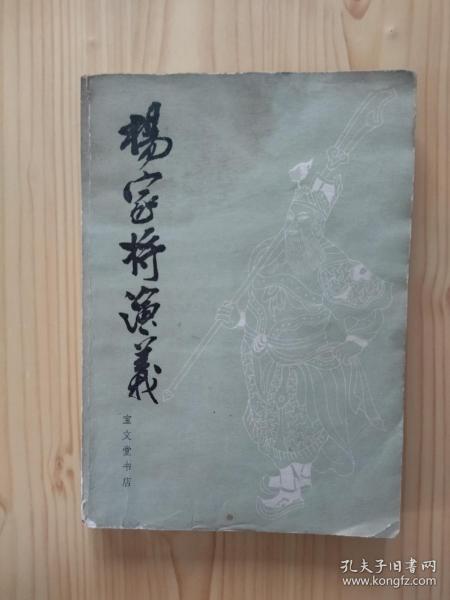 楊家將演義
宝文堂书店
孔夫子旧书网
www.kongfz.com